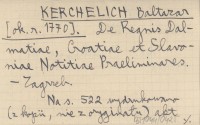 KERCHELICH Baltazar
[ok. r. 1770]. De Regnis Dal-
matiae, Croatiae et Slavo-
niae Notitiae Praeliminares.
— Zagreb.
Na s. 522 wydrukowano
(z kopii, nie z oryginału) akt